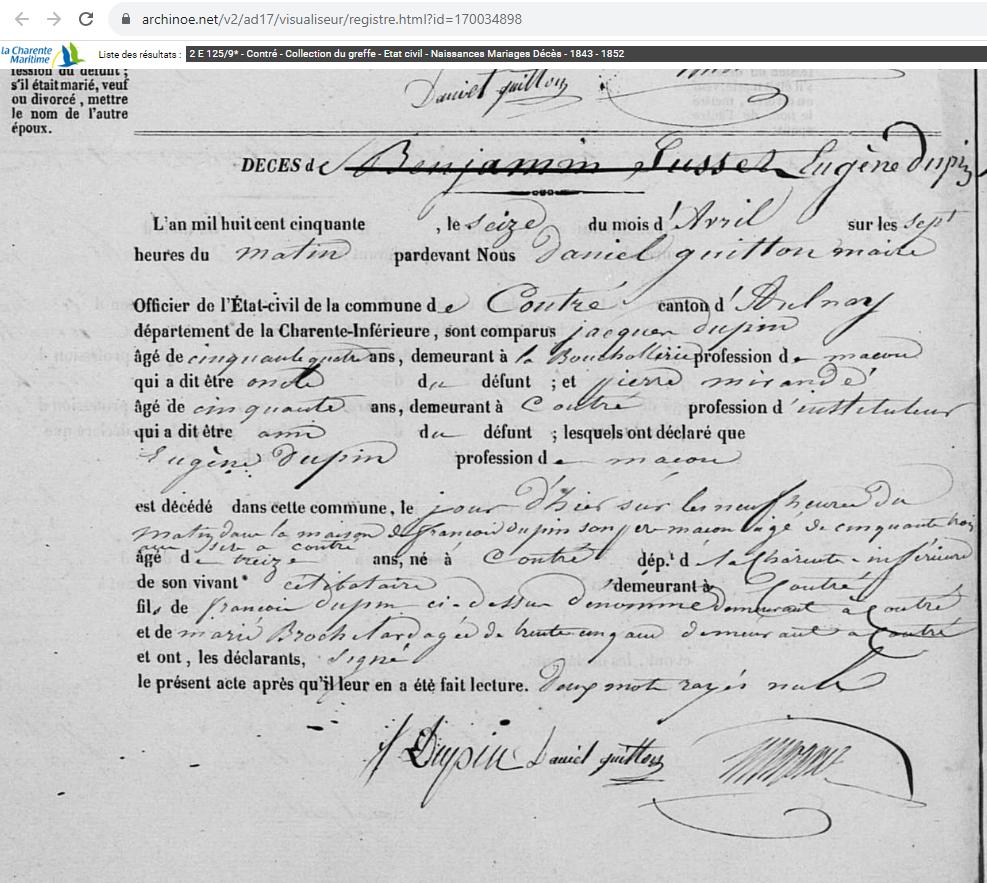 archinoe.net/v2/ad17/visualiseur/registre.html?id=170034898
la Charente Maritime
Liste des résultats : 2 E 125/9* - Contré - Collection du greffe - Etat civil - Naissances Mariages Décès - 1843 - 1852
fession du défunt ;
s'il était marié, veuf
ou divorcé, mettre
le nom de l'autre
époux.
Daniel guitton
DECES de Benjamin Eugène Dupin
L'an mil huit cent cinquante, le seize du mois d'Avril sur les sept
heures du matin pardevant Nous Daniel guitton maire
Officier de l'État-civil de la commune de Contré canton d'Aulnay
département de la Charente-Inférieure, sont comparus jacques dupin
âgé de cinquante quatre ans, demeurant à la Bouchollerie profession de macon
qui a dit être oncle du défunt ; et pierre mirande
âgé de cinquante ans, demeurant à Contré profession d'instituteur
qui a dit être ami du défunt ; lesquels ont déclaré que
Eugène Dupin profession de macon
est décédé dans cette commune, le jour d'hier sur les neuf heures du
matin dans la maison de françois dupin son per macon agé de cinquante trois
ans a contré
âgé de treize ans, né à Contré dép.t d la Charente inférieure
de son vivant* célibataire demeurant à Contré
fils de françois dupin ci-dessus denommé demeurant à Contré
et de marie Brochetard agée de trente cinq ans demeurant a Contré
et ont, les déclarants, signé
le présent acte après qu'il leur en a été fait lecture. Deux mots rayés nuls
Dupin Daniel guitton